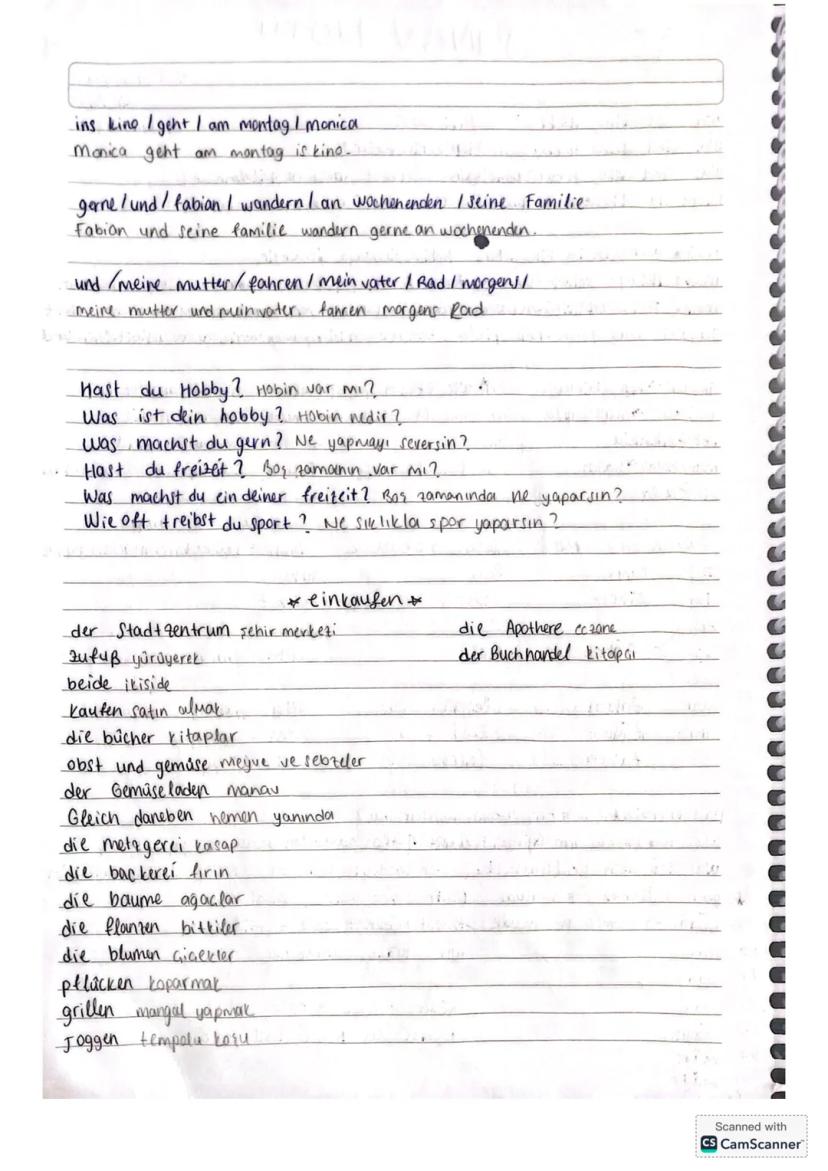 ins kino / geht / am montag / monica
Monica geht am montag is kino.
gerne / und / fabian / wandern / an wochenenden / seine Familie
Fabian und seine familie wandern gerne an wochenenden.
und / meine mutter / fahren / mein vater / Rad / morgens /
meine mutter und mein vater. fahren morgens Rad
Hast du Hobby? Hobin var mı?
Was ist dein hobby? Hobin nedir?
Was machst du gern? Ne yapmayı seversin?
Hast du freizeit? Boş zamanın var mı?
Was machst du ein deiner freizeit? Boş zamanında ne yaparsın?
Wie oft treibst du sport? Ne sıklıkla spor yaparsın?
* einkaufen *
der Stadtzentrum şehir merkezi
die Apothere eczane
zufuß yürüyerek
der Buchhandel kitapçı
beide ikiside
kaufen satın almak
die bücher kitaplar
obst und gemüse meyve ve sebzeler
der Gemüseladen manav
Gleich daneben hemen yanında
die metzgerei kasap
die backerei fırın
die baume ağaçlar
die flanzen bitkiler
die blumen çiçekler
pflücken koparmak
grillen mangal yapmak
Joggen tempolu koşu
Scanned with
CS CamScanner